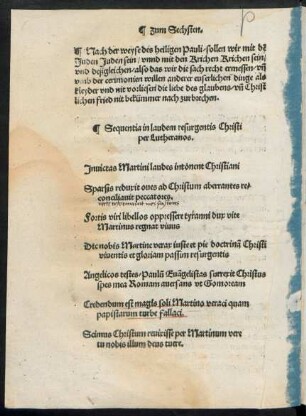 ¶ zum Sechsten.
¶ Nach der weyse des heiligen Pauli sollen wir mit dē
Juden Juden sein, vnnd mit den Krichen Krichen sein,
vnd deßgleichen, also das wir die sach recht ermessen, vñ
vmb der cerimonien willen anderer euserlichen dinge als
kleyder vnd nit vorliesen die liebe des glaubens, vñ Christ
lichen fried nit bekümmer nach zurbrechen.
¶ Sequentia in laudem resurgentis Christi
per Lutheranos.
Inuictas Martini laudes intonent Christiani
Sparsis reduxit oues ab Christum aberrantes re-
concilianit peccatores.
Fortis viri libellos oppressere tyranni dux vite
Martinus regnat viuus
Dic nobis Martine verax iuste et pie doctrinā Christi
viuentis et gloriam passim resurgentis
Angelicos testes, Paulū Euāgelistas surrexit Christus
spes mea Romam auersans vt Gomorram
Credendum est magis soli Martino veraci quam
papistarum turbe fallaci.
Scimus Christum reuixisse per Martinum vere
tu nobis illum deus tuere.